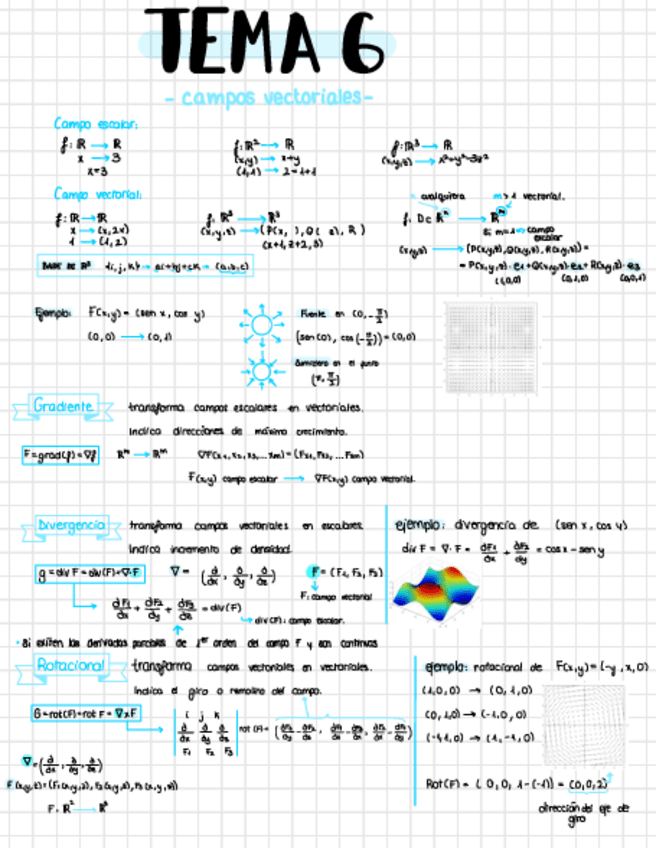 TEMA 6
- campos vectoriales -
Campo escalar:
f: ℝ → ℝ
x → 3
x=3
f: ℝ² → ℝ
(x,y) → x+y
(1,1) → 2=1+1
f: ℝ³ → ℝ
(x,y,z) → x²+y²-3z²
Campo vectorial:
f: ℝ → ℝ
x → (x,2x)
1 → (1,2)
f: ℝ² → ℝ³
cualquiera m>1 vectorial.
f: D⊂ℝⁿ → ℝᵐ
Si m=1 campo escalar
(x,y,z) → (P(x,y,z), Q(x,y,z), R(x,y,z)) =
= P(x,y,z)·e1+Q(x,y,z)·e2+R(x,y,z)·e3
(1,0,0) (0,1,0) (0,0,1)
BASE DE ℝ³ {i,j,k} → ai+bj+ck → (a,b,c)
Ejemplo: F(x,y)= (sen x, cos y)
(0,0) → (0,1)
Fuente en (0,-π/2)
(sen(0), cos(-π/2))=(0,0)
Sumidero en el punto
(π, π/2)
Gradiente transforma campos escalares en vectoriales.
Indica direcciones de máximo crecimiento.
F=grad(f)=∇f
F(x,y) campo escalar → ∇F(x,y) campo vectorial.
Divergencia transforma campos vectoriales en escalares.
Indica incremento de densidad.
g = div F = div(F)=∇·F ∇= (∂/∂x, ∂/∂y, ∂/∂z) F= (F1, F2, F3)
F: campo vectorial
∂F1/∂x + ∂F2/∂y + ∂F3/∂z = div(F)
div(F): campo escalar.
ejemplo: divergencia de (sen x, cos y)
div F = ∇·F = ∂F1/∂x + ∂F2/∂y = cos x - sen y
· Si existen las derivadas parciales de 1er orden del campo F y son continuas
Rotacional transforma campos vectoriales en vectoriales.
Indica el giro o remolino del campo.
G=rot(F)=rot F = ∇xF
i j k
∂/∂x ∂/∂y ∂/∂z
F1 F2 F3
∇=(∂/∂x, ∂/∂y, ∂/∂z)
ejemplo: rotacional de F(x,y)=(-y,x,0)
(1,0,0) → (0,1,0)
(0,1,0) → (-1,0,0)
Rot(F) = (0,0, 1-(-1)) = (0,0,2)
dirección del eje de
giro